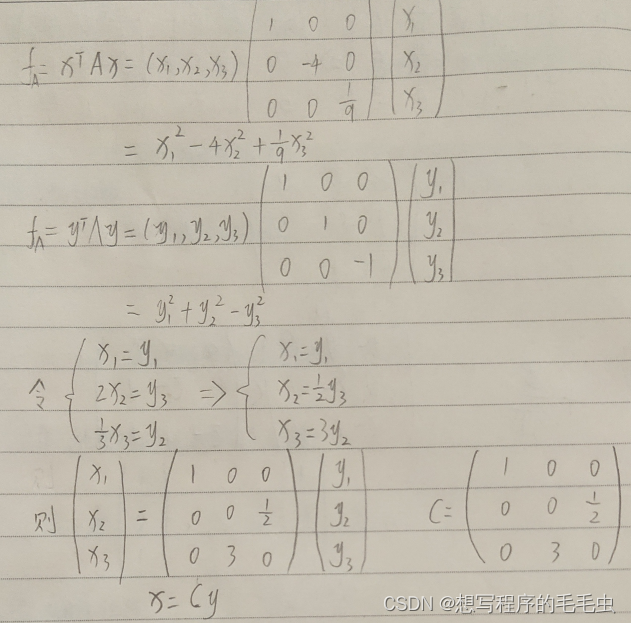 f_A = xᵀAx = (x₁,x₂,x₃) (1 0 0; 0 -4 0; 0 0 1/9) (x₁; x₂; x₃)
= x₁² - 4x₂² + 1/9 x₃²
f_Λ = yᵀΛy = (y₁,y₂,y₃) (1 0 0; 0 1 0; 0 0 -1) (y₁; y₂; y₃)
= y₁² + y₂² - y₃²
令 { x₁=y₁; 2x₂=y₃; 1/3 x₃=y₂ => { x₁=y₁; x₂=1/2 y₃; x₃=3y₂
则 (x₁; x₂; x₃) = (1 0 0; 0 0 1/2; 0 3 0) (y₁; y₂; y₃) C= (1 0 0; 0 0 1/2; 0 3 0)
x = Cy
CSDN @想写程序的毛毛虫